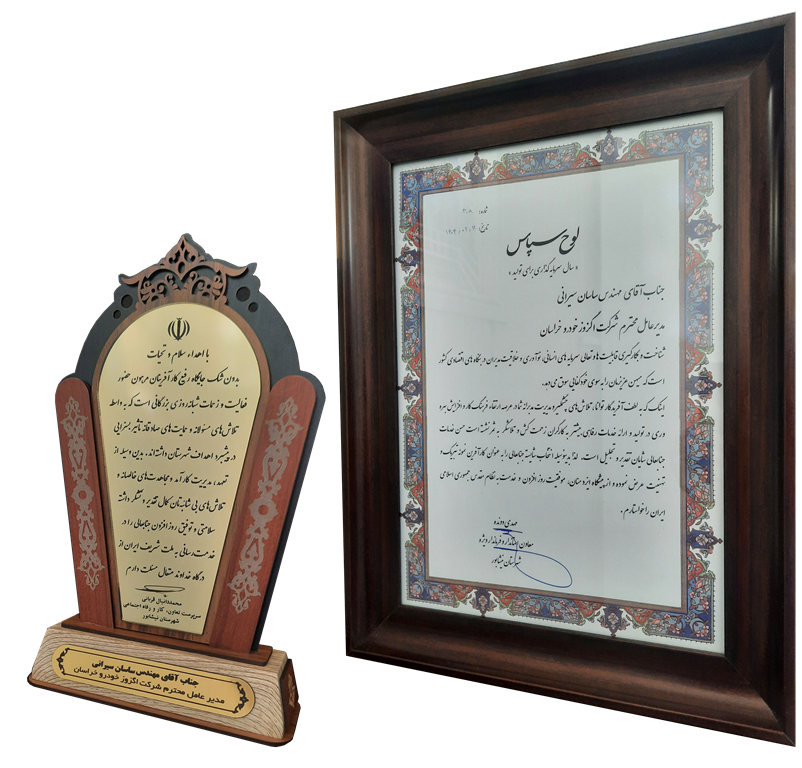 با اهداء سلام و تحیات
بدون شک جایگاه رفیع کارآفرینان مرهون حضور
فعالیت و زحمات شبانه روزی بزرگانی است که به واسطه
تلاش‌های مسئولانه و حمایت‌های صادقانه تاثیر بسزایی
در پیشبرد اهداف شهرستان داشته‌اند، بدین وسیله از
تعهد، مدیریت کارآمد و مجاهدت‌های خالصانه و
تلاش‌های بی شائبه‌تان کمال تقدیر و تشکر داشته
سلامتی و توفیق روزافزون جنابعالی را در
خدمت رسانی به ملت شریف ایران از
درگاه خداوند متعال مسئلت دارم
محمددانیال قربانی
سرپرست تعاون، کار و رفاه اجتماعی
شهرستان نیشابور
جناب آقای مهندس ساسان سیرانی
مدیر عامل محترم شرکت اگزوز خودرو خراسان
شماره:
تاریخ:
لوح سپاس
« سال سرمایه گذاری برای تولید »
جناب آقای مهندس ساسان سیرانی
مدیرعامل محترم شرکت اگزوز خودرو خراسان
شناخت و بکارگیری قابلیت ها و تعالی سرمایه های انسانی، نوآوری و خلاقیت مدیران در بنگاه های اقتصادی کشور
است که میهن عزیزمان را به سوی خودکفایی سوق می دهد.
اینک که به لطف آفریدگار توانا، تلاش های چشمگیر و مدیریت مدبرانه شما در عرصه ارتقاء فرهنگ کار و افزایش بهره
وری در تولید و ارائه خدمات رفاهی، بیشتر به کارگران زحمت کش و تلاشگر به ثمر نشسته است حسن خدمات
جنابعالی شایان تقدیر و تجلیل است. لذا بدینوسیله انتخاب شایسته جنابعالی را به عنوان کارآفرین نمونه تبریک و
تهنیت عرض نموده و از پیشگاه ایزد منان، موفقیت روز افزون و خدمت به نظام مقدس جمهوری اسلامی
ایران را خواستارم.
مهدی دونده
معاون استاندار و فرماندار ویژه
شهرستان نیشابور